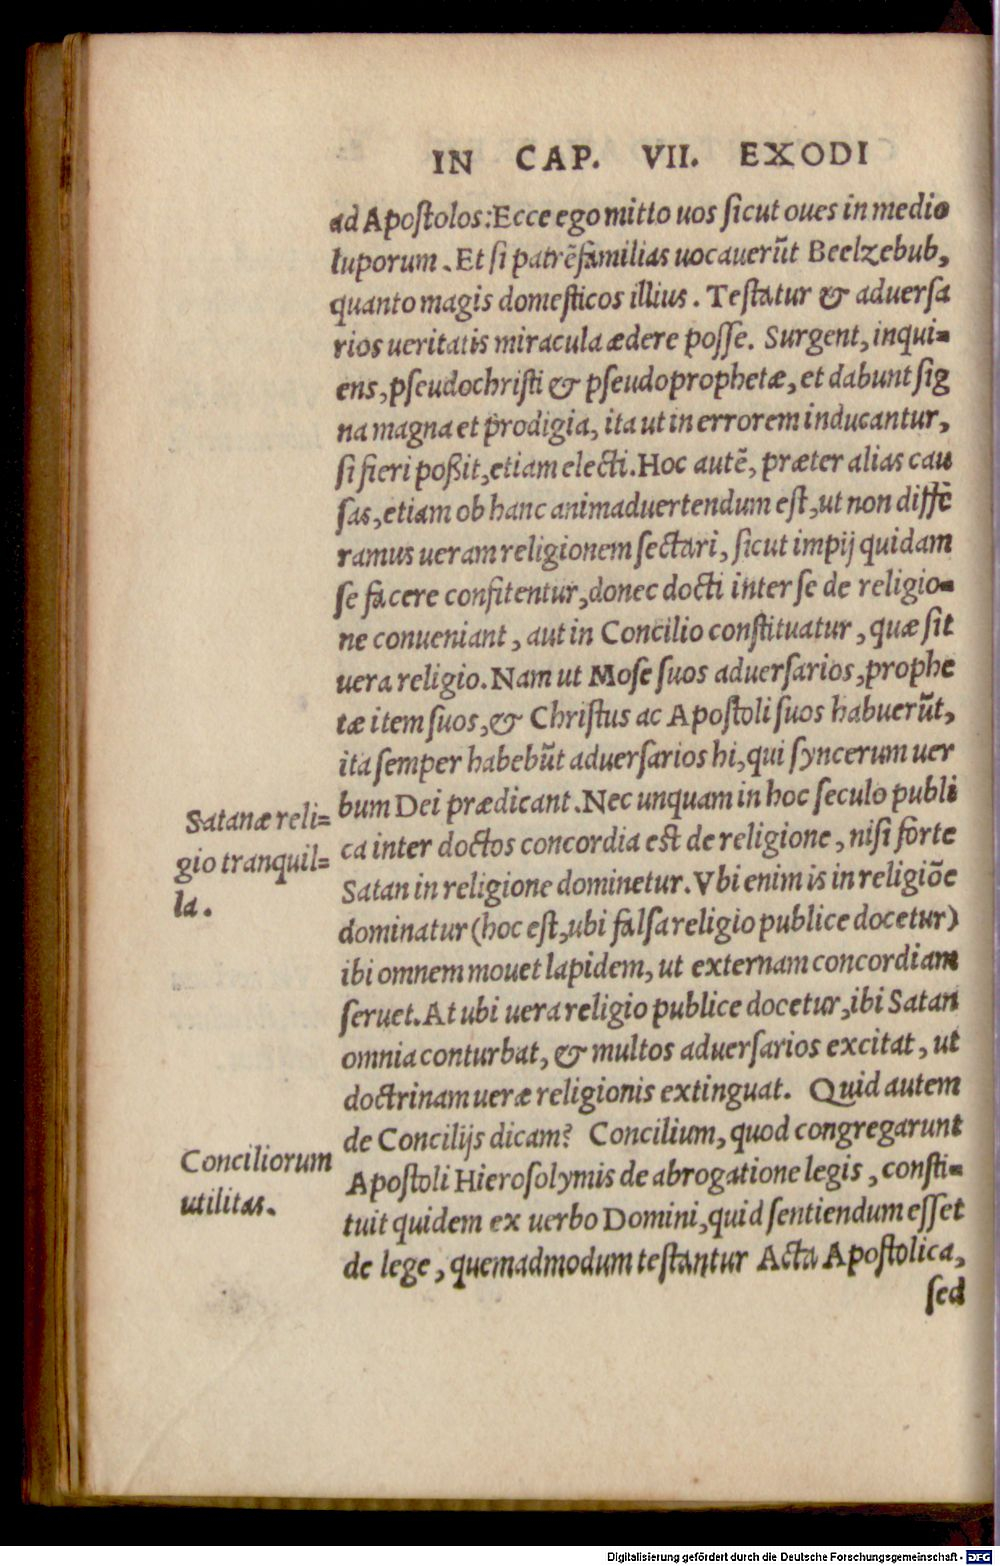 IN CAP. VII. EXODI
ad Apoſtolos: Ecce ego mitto uos ſicut oues in medio
luporum. Et ſi patrẽfamilias uocauerũt Beelzebub,
quanto magis domeſticos illius. Teſtatur & aduerſa
rios ueritatis miracula ædere poſſe. Surgent, inqui=
ens, pſeudochriſti & pſeudoprophetæ, et dabunt ſig
na magna et prodigia, ita ut in errorem inducantur,
ſi fieri poßit, etiam electi. Hoc autẽ, præter alias cau
ſas, etiam ob hanc animaduertendum eſt, ut non diffe
ramus ueram religionem ſectari, ſicut impij quidam
ſe facere confitentur, donec docti inter ſe de religio=
ne conueniant, aut in Concilio conſtituatur, quæ ſit
uera religio. Nam ut Moſe ſuos aduerſarios, prophe
tæ item ſuos, & Chriſtus ac Apoſtoli ſuos habuerũt,
ita ſemper habebũt aduerſarios hi, qui ſyncerum uer
bum Dei prædicant. Nec unquam in hoc ſeculo publi
ca inter doctos concordia eſt de religione, niſi forte
Satan in religione dominetur. Vbi enim is in religiõe
dominatur (hoc eſt, ubi falſa religio publice docetur)
ibi omnem mouet lapidem, ut externam concordiam
ſeruet. At ubi uera religio publice docetur, ibi Satan
omnia conturbat, & multos aduerſarios excitat, ut
doctrinam ueræ religionis extinguat. Quid autem
de Concilijs dicam? Concilium, quod congregarunt
Apoſtoli Hieroſolymis de abrogatione legis, conſti=
tuit quidem ex uerbo Domini, quid ſentiendum eſſet
de lege, quemadmodum teſtantur Acta Apoſtolica,
ſed
Satanæ reli=
gio tranquil=
la.
Conciliorum
utilitas.
Digitalisierung gefördert durch die Deutsche Forschungsgemeinschaft - DFG